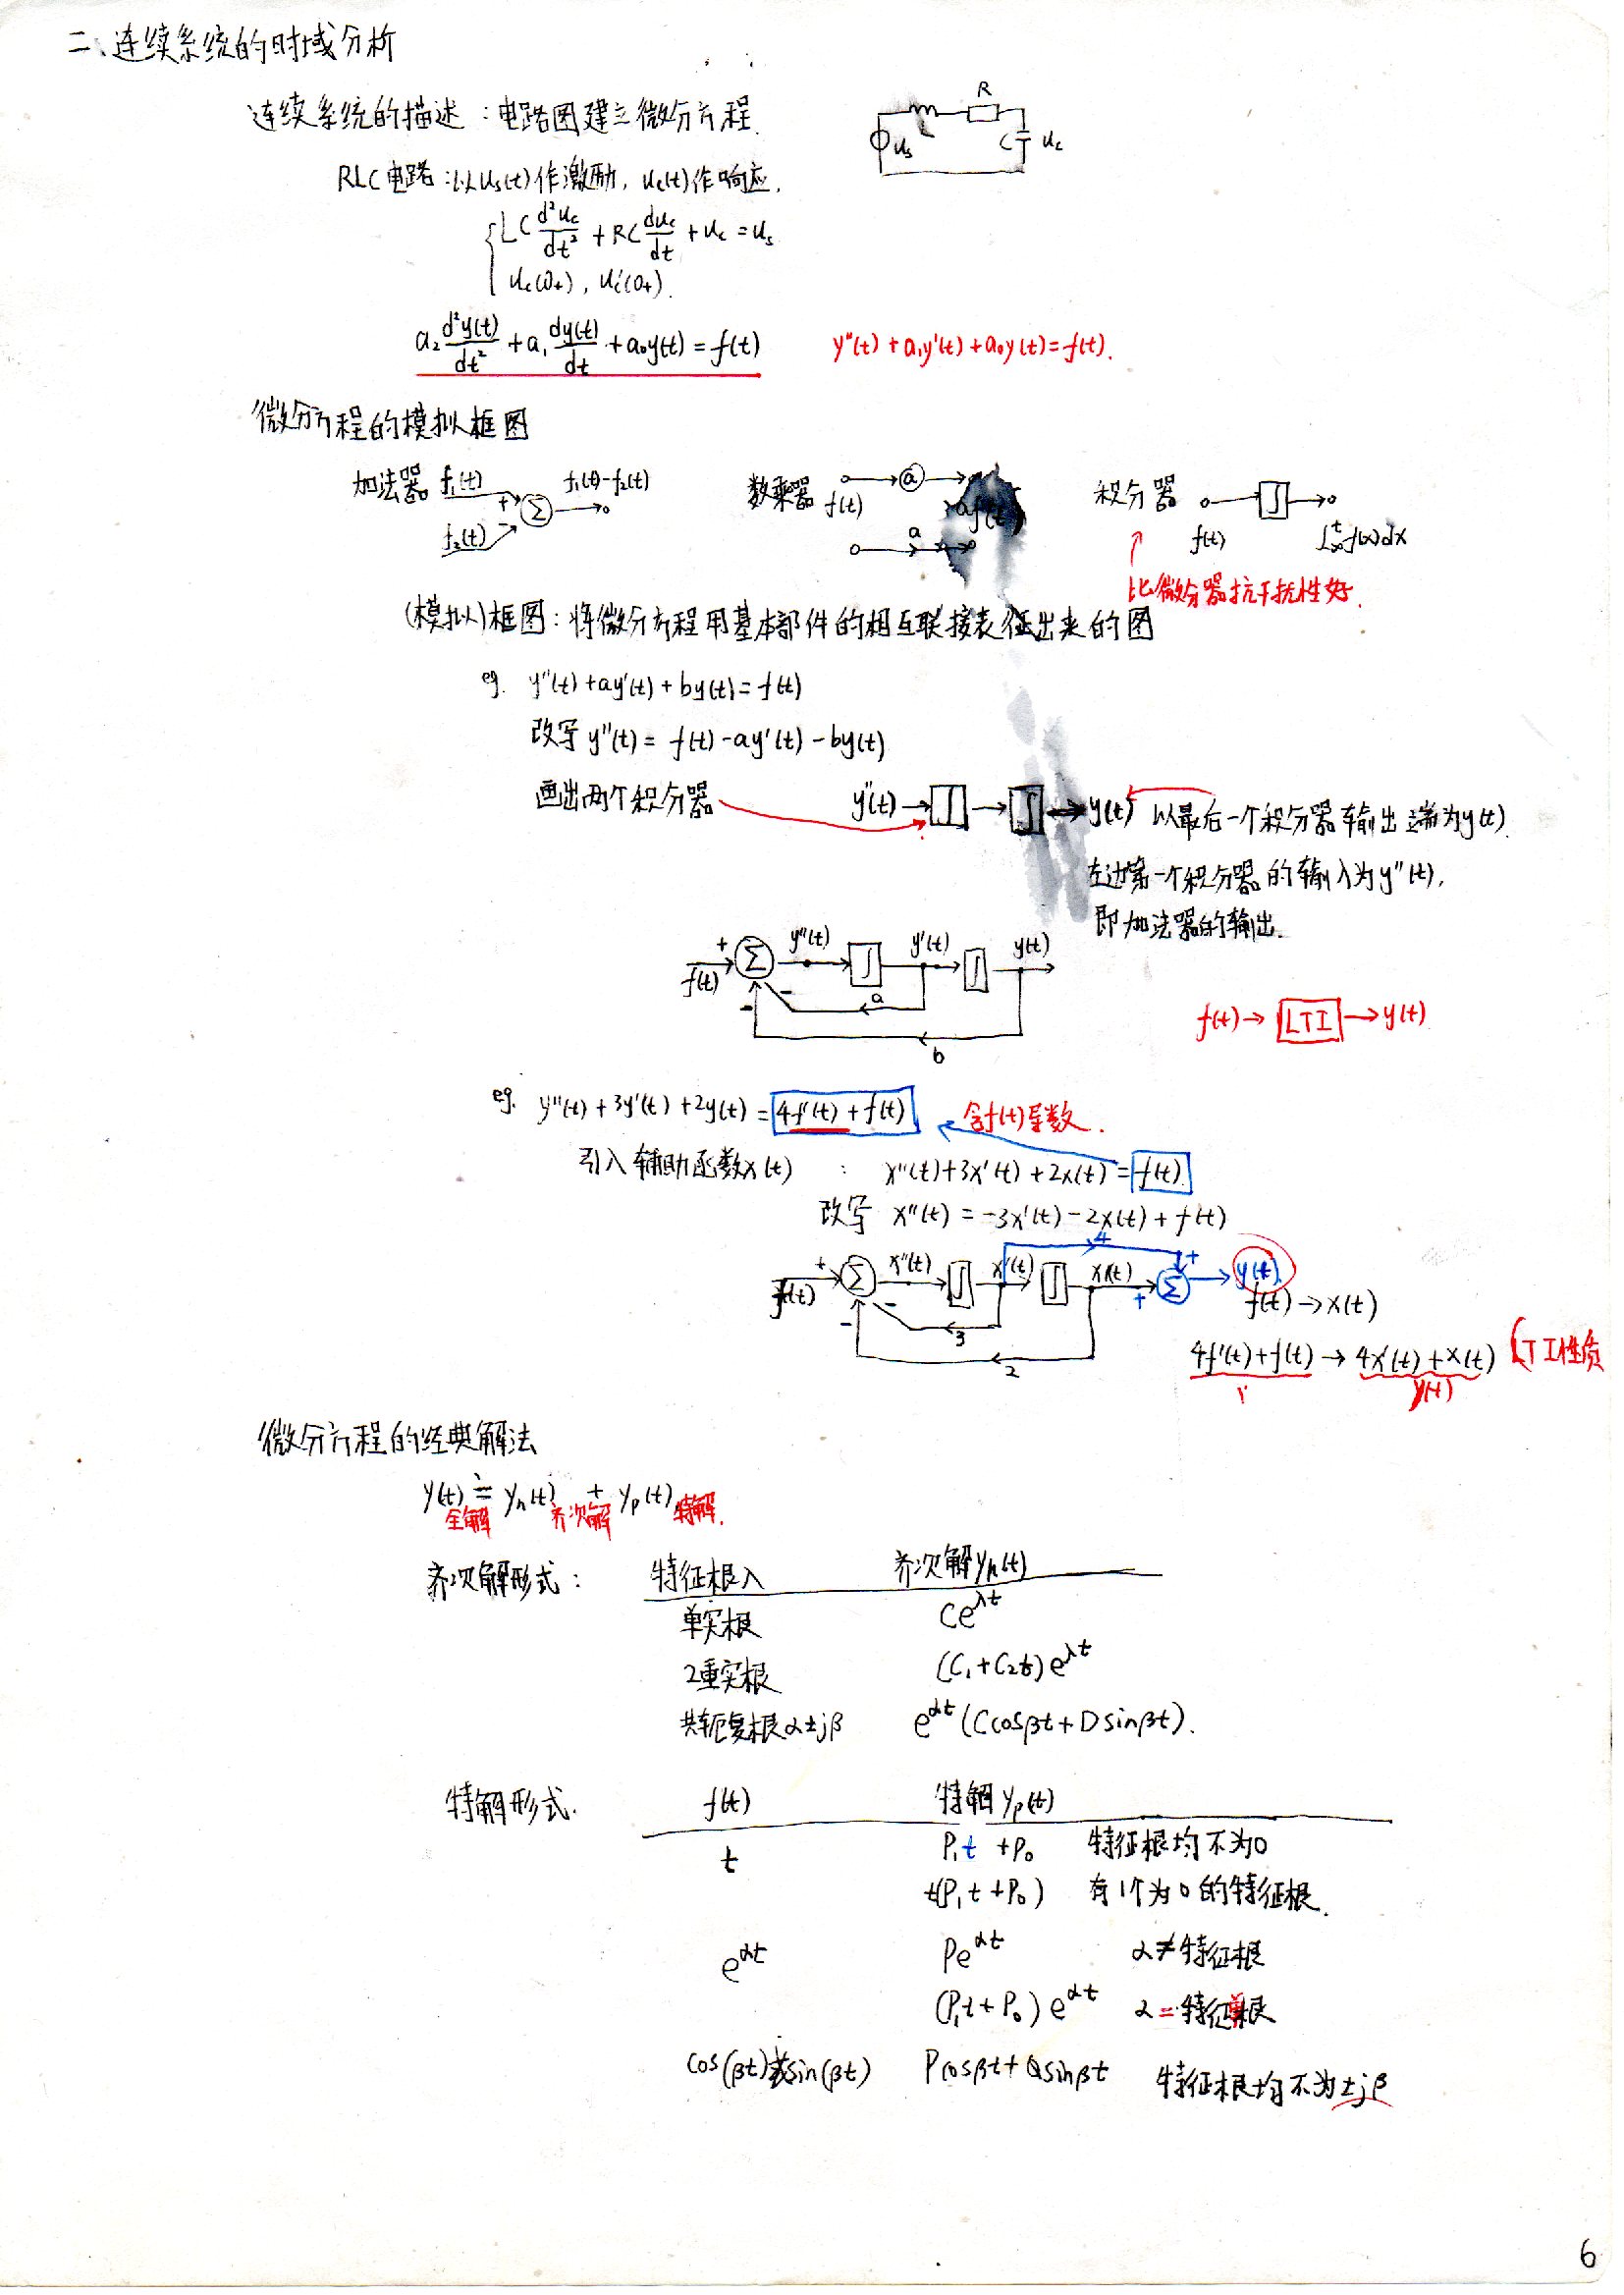 二、连续系统的时域分析
连续系统的描述：电路图建立微分方程.
R
L
us
C
uc
RLC电路：以us(t)作激励，uc(t)作响应.
LC d²uc/dt² + RC duc/dt + uc = us
uc(0+), uc'(0+).
a₂ d²y(t)/dt² + a₁ dy(t)/dt + a₀y(t) = f(t)
y''(t) + a₁y'(t) + a₀y(t) = f(t).
微分方程的模拟框图
加法器 f₁(t) + Σ f₁(t)-f₂(t)
f₂(t) -
数乘器 f(t) a af(t)
a
积分器 ∫
f(t) ∫_{-∞}^t f(x)dx
比微分器抗干扰性好.
(模拟)框图：将微分方程用基本部件的相互联接表征出来的图
eg. y''(t) + ay'(t) + by(t) = f(t)
改写 y''(t) = f(t) - ay'(t) - by(t)
画出两个积分器 y''(t) → ∫ → ∫ → y(t) 以最后一个积分器输出端为y(t).
左边第一个积分器的输入为y''(t),
即加法器的输出.
+ Σ y''(t) ∫ y'(t) ∫ y(t)
f(t) - - a
b
f(t) → LTI → y(t)
eg. y''(t) + 3y'(t) + 2y(t) = 4f'(t) + f(t) 含f(t)导数.
引入辅助函数x(t) : x''(t) + 3x'(t) + 2x(t) = f(t).
改写 x''(t) = -3x'(t) - 2x(t) + f(t)
4
+ Σ x''(t) ∫ x'(t) ∫ x(t) + + Σ y(t).
f(t) - - 3
2
f(t) → x(t)
4f'(t) + f(t) → 4x'(t) + x(t) LTI性质
y(t)
微分方程的经典解法
y(t) = yh(t) + yp(t)
全解 齐次解 特解.
齐次解形式： 特征根λ 齐次解yh(t)
单实根 Ce^{λt}
2重实根 (C₁+C₂t)e^{λt}
共轭复根α±jβ e^{αt}(Ccosβt+Dsinβt).
特解形式. f(t) 特解yp(t)
t P₁t + P₀ 特征根均不为0
t(P₁t + P₀) 有1个为0的特征根.
e^{αt} Pe^{αt} α≠特征根
(P₁t + P₀)e^{αt} α=特征单根
cos(βt)或sin(βt) Pcosβt+Qsinβt 特征根均不为±jβ
6